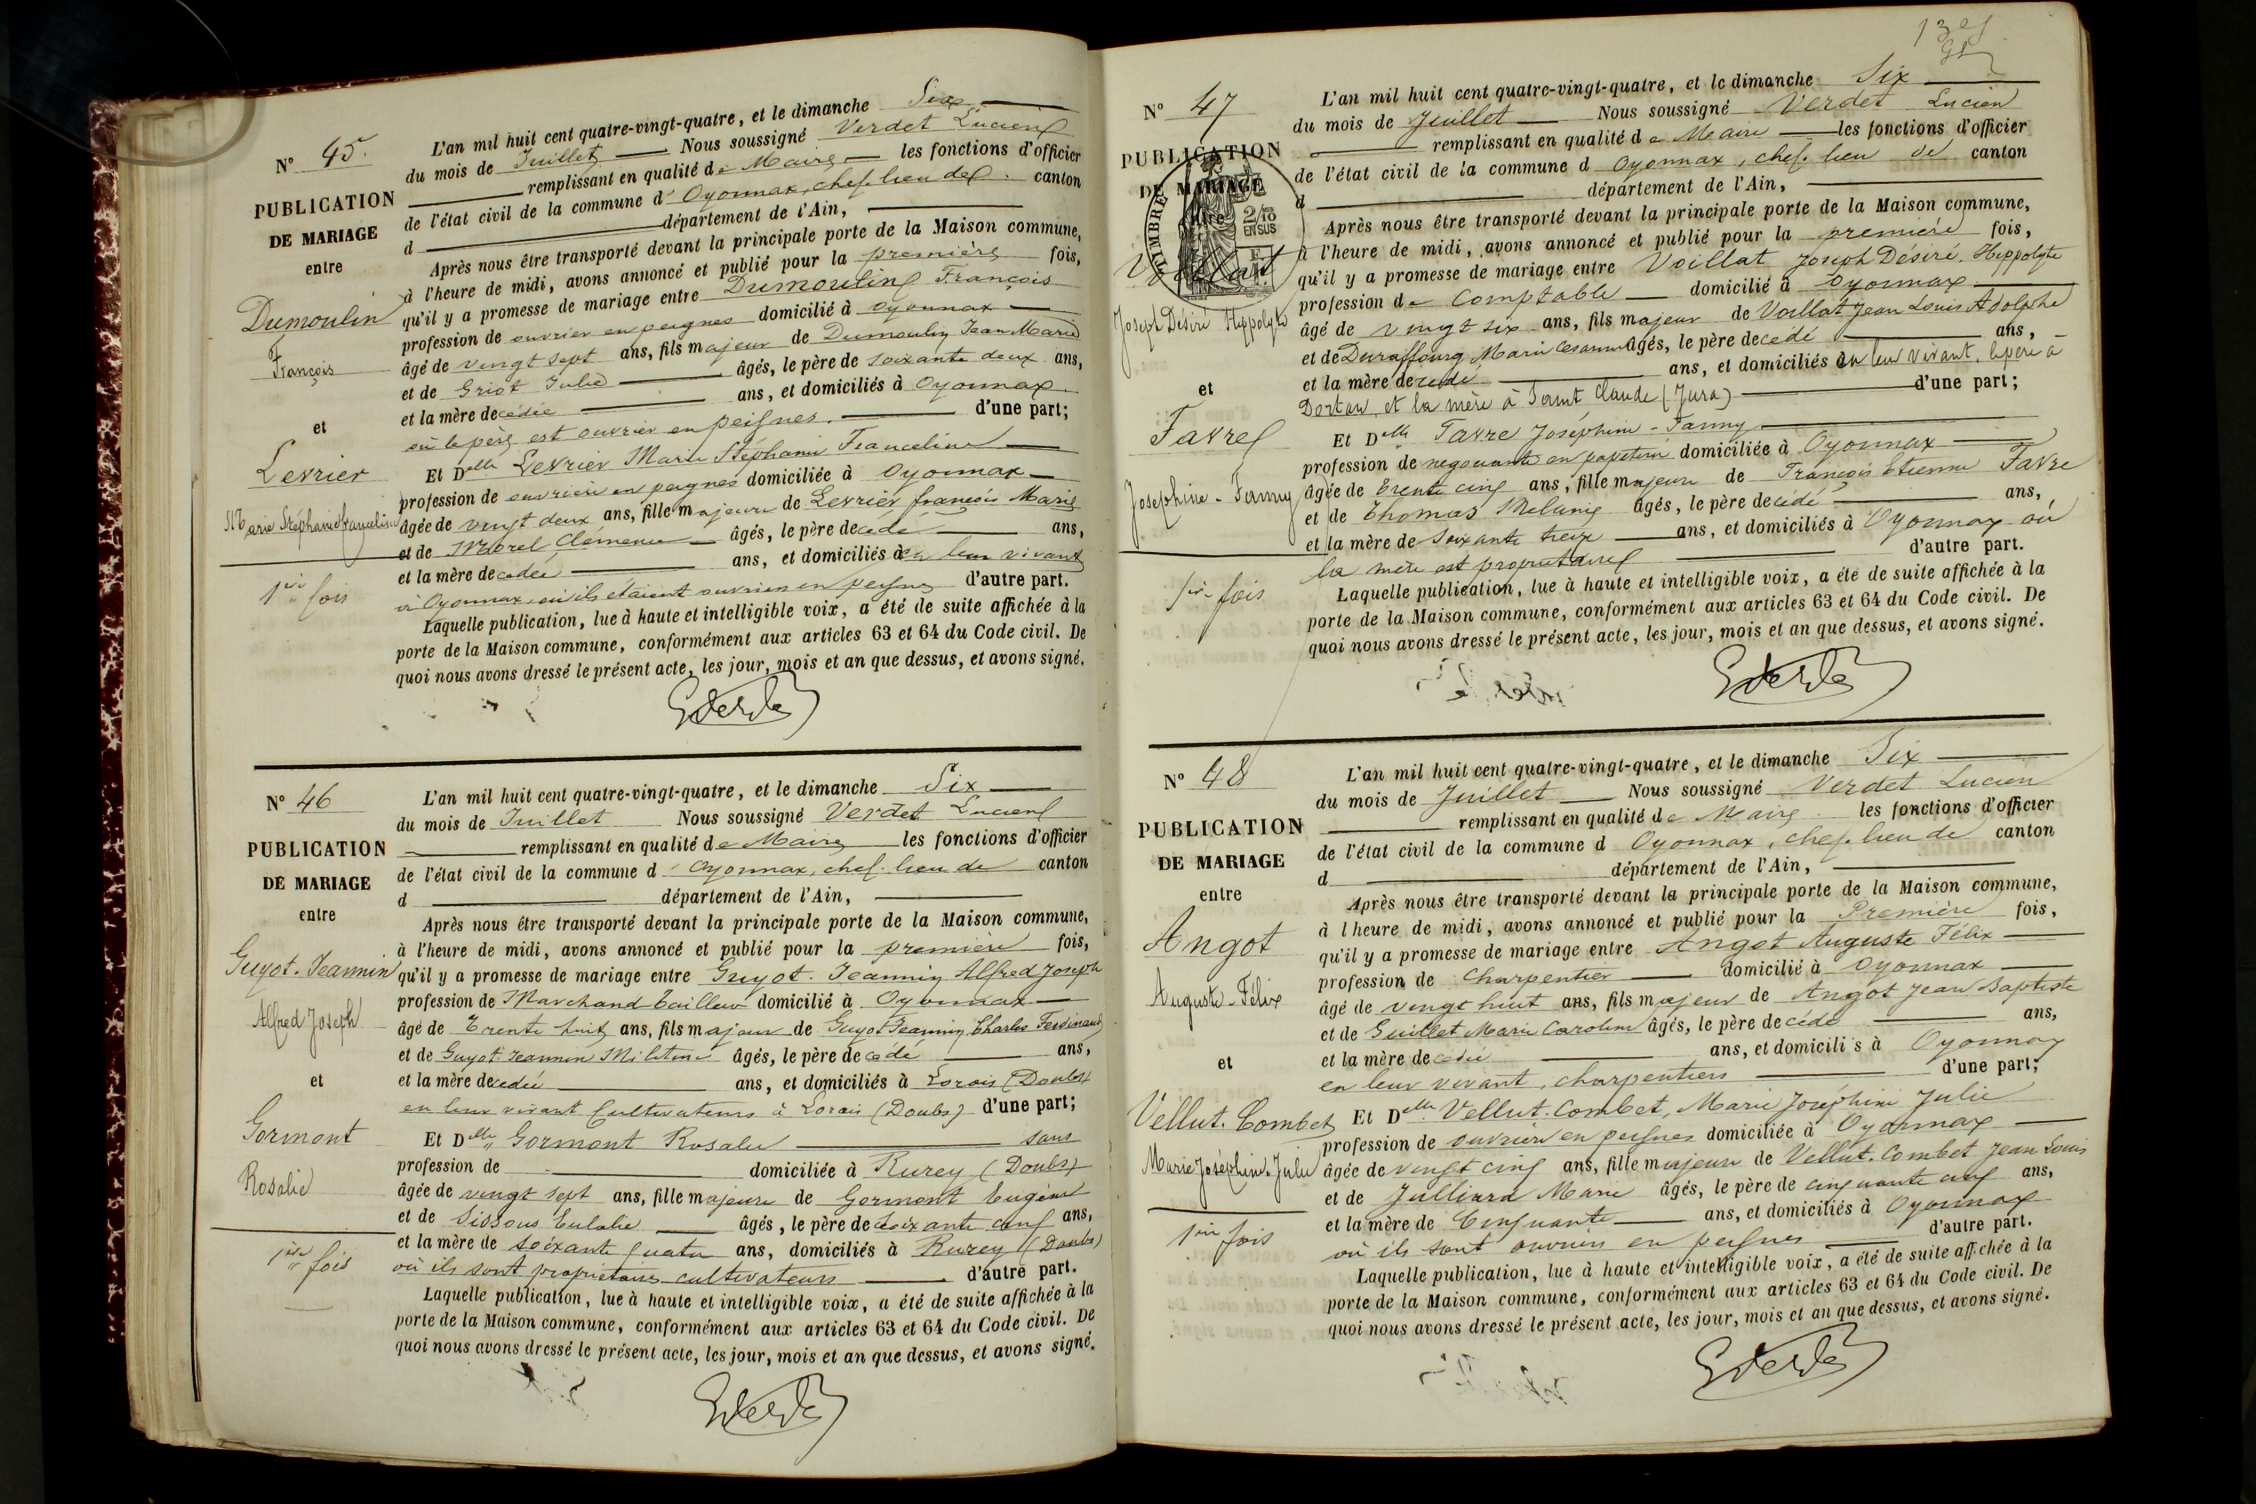 N° 45.
PUBLICATION
DE MARIAGE
entre
Dumoulin
François
et
Levrier
Marie Stéphanie Franceline
1ère fois
L'an mil huit cent quatre-vingt-quatre, et le dimanche Six
du mois de Juillet Nous soussigné Verdet Lucien
remplissant en qualité de Maire les fonctions d'officier
de l'état civil de la commune d'Oyonnax, chef-lieu de canton
d département de l'Ain,
Après nous être transporté devant la principale porte de la Maison commune,
à l'heure de midi, avons annoncé et publié pour la première fois,
qu'il y a promesse de mariage entre Dumoulin François
profession de ouvrier en peignes domicilié à Oyonnax
âgé de vingt sept ans, fils majeur de Dumoulin Jean Marie
et de Griot Julie âgés, le père de soixante deux ans,
et la mère decédée ans, et domiciliés à Oyonnax
où le père est ouvrier en peignes. d'une part;
Et Delle Levrier Marie Stéphanie Franceline
profession de ouvrière en peignes domiciliée à Oyonnax
âgée de vingt deux ans, fille majeure de Levrier françois Marie
et de Morel Clémence âgés, le père decédé ans,
et la mère decédée ans, et domiciliés à en leur vivant
à Oyonnax, où ils étaient ouvriers en peignes d'autre part.
Laquelle publication, lue à haute et intelligible voix, a été de suite affichée à la
porte de la Maison commune, conformément aux articles 63 et 64 du Code civil. De
quoi nous avons dressé le présent acte, les jour, mois et an que dessus, et avons signé.
N° 46
PUBLICATION
DE MARIAGE
entre
Guyot-Jeannin
Alfred Joseph
et
Gormont
Rosalie
1ère fois
L'an mil huit cent quatre-vingt-quatre, et le dimanche Six
du mois de Juillet Nous soussigné Verdet Lucien
remplissant en qualité de Maire les fonctions d'officier
de l'état civil de la commune d'Oyonnax, chef-lieu de canton
d département de l'Ain,
Après nous être transporté devant la principale porte de la Maison commune,
à l'heure de midi, avons annoncé et publié pour la première fois,
qu'il y a promesse de mariage entre Guyot-Jeannin Alfred Joseph
profession de Marchand tailleur domicilié à Oyonnax
âgé de trente huit ans, fils majeur de Guyot Jeannin Charles Ferdinand
et de Guyot Jeannin Militine âgés, le père decédé ans,
et la mère decédée ans, et domiciliés à Lorais (Doubs)
en leur vivant Cultivateurs à Lorais (Doubs) d'une part;
Et Delle Gormont Rosalie sans
profession de domiciliée à Rurey (Doubs)
âgée de vingt sept ans, fille majeure de Gormont Eugène
et de Sissous Eulalie âgés, le père de soixante cinq ans,
et la mère de soixante quatre ans, domiciliés à Rurey (Doubs)
où ils sont propriétaires cultivateurs d'autre part.
Laquelle publication, lue à haute et intelligible voix, a été de suite affichée à la
porte de la Maison commune, conformément aux articles 63 et 64 du Code civil. De
quoi nous avons dressé le présent acte, les jour, mois et an que dessus, et avons signé.
N° 47
PUBLICATION
DE MARIAGE
entre
TIMBRE
2/10
EN SUS
Voillat
Joseph Désiré Hippolyte
et
Favre
Joséphine-Fanny
1ère fois
L'an mil huit cent quatre-vingt-quatre, et le dimanche Six
du mois de Juillet Nous soussigné Verdet Lucien
remplissant en qualité de Maire les fonctions d'officier
de l'état civil de la commune d Oyonnax, chef-lieu de canton
d département de l'Ain,
Après nous être transporté devant la principale porte de la Maison commune,
à l'heure de midi, avons annoncé et publié pour la première fois,
qu'il y a promesse de mariage entre Voillat Joseph Désiré Hippolyte
profession de Comptable domicilié à Oyonnax
âgé de vingt six ans, fils majeur de Voillat Jean Louis Adolphe
et de Duraffourg Marie Césarine âgés, le père decédé ans,
et la mère decédé ans, et domiciliés en leur vivant, le père à
Dortan et la mère à Saint Claude (Jura) d'une part;
Et Delle Favre Joséphine-Fanny
profession de negociante en papeterie domiciliée à Oyonnax
âgée de trente cinq ans, fille majeure de François Etienne Favre
et de Thomas Melanie âgés, le père decédé ans,
et la mère de soixante treize ans, et domiciliés à Oyonnax où
la mère est propriétaire d'autre part.
Laquelle publication, lue à haute et intelligible voix, a été de suite affichée à la
porte de la Maison commune, conformément aux articles 63 et 64 du Code civil. De
quoi nous avons dressé le présent acte, les jour, mois et an que dessus, et avons signé.
N° 48
PUBLICATION
DE MARIAGE
entre
Angot
Auguste-Félix
et
Vellut-Combet
Marie Joséphine Julie
1ère fois
L'an mil huit cent quatre-vingt-quatre, et le dimanche Six
du mois de Juillet Nous soussigné Verdet Lucien
remplissant en qualité de Maire les fonctions d'officier
de l'état civil de la commune d Oyonnax, chef-lieu de canton
d département de l'Ain,
Après nous être transporté devant la principale porte de la Maison commune,
à l'heure de midi, avons annoncé et publié pour la Première fois,
qu'il y a promesse de mariage entre Angot Auguste Félix
profession de Charpentier domicilié à Oyonnax
âgé de vingt huit ans, fils majeur de Angot Jean Baptiste
et de Guillet Marie Caroline âgés, le père decédé ans,
et la mère decédée ans, et domiciliés à Oyonnax
en leur vivant, charpentiers d'une part;
Et Delle Vellut-Combet, Marie Joséphine Julie
profession de ouvrière en peignes domiciliée à Oyonnax
âgée de vingt cinq ans, fille majeure de Vellut-Combet Jean Louis
et de Julliard Marie âgés, le père de cinquante cinq ans,
et la mère de Cinquante ans, et domiciliés à Oyonnax
où ils sont ouvriers en peignes d'autre part.
Laquelle publication, lue à haute et intelligible voix, a été de suite affichée à la
porte de la Maison commune, conformément aux articles 63 et 64 du Code civil. De
quoi nous avons dressé le présent acte, les jour, mois et an que dessus, et avons signé.